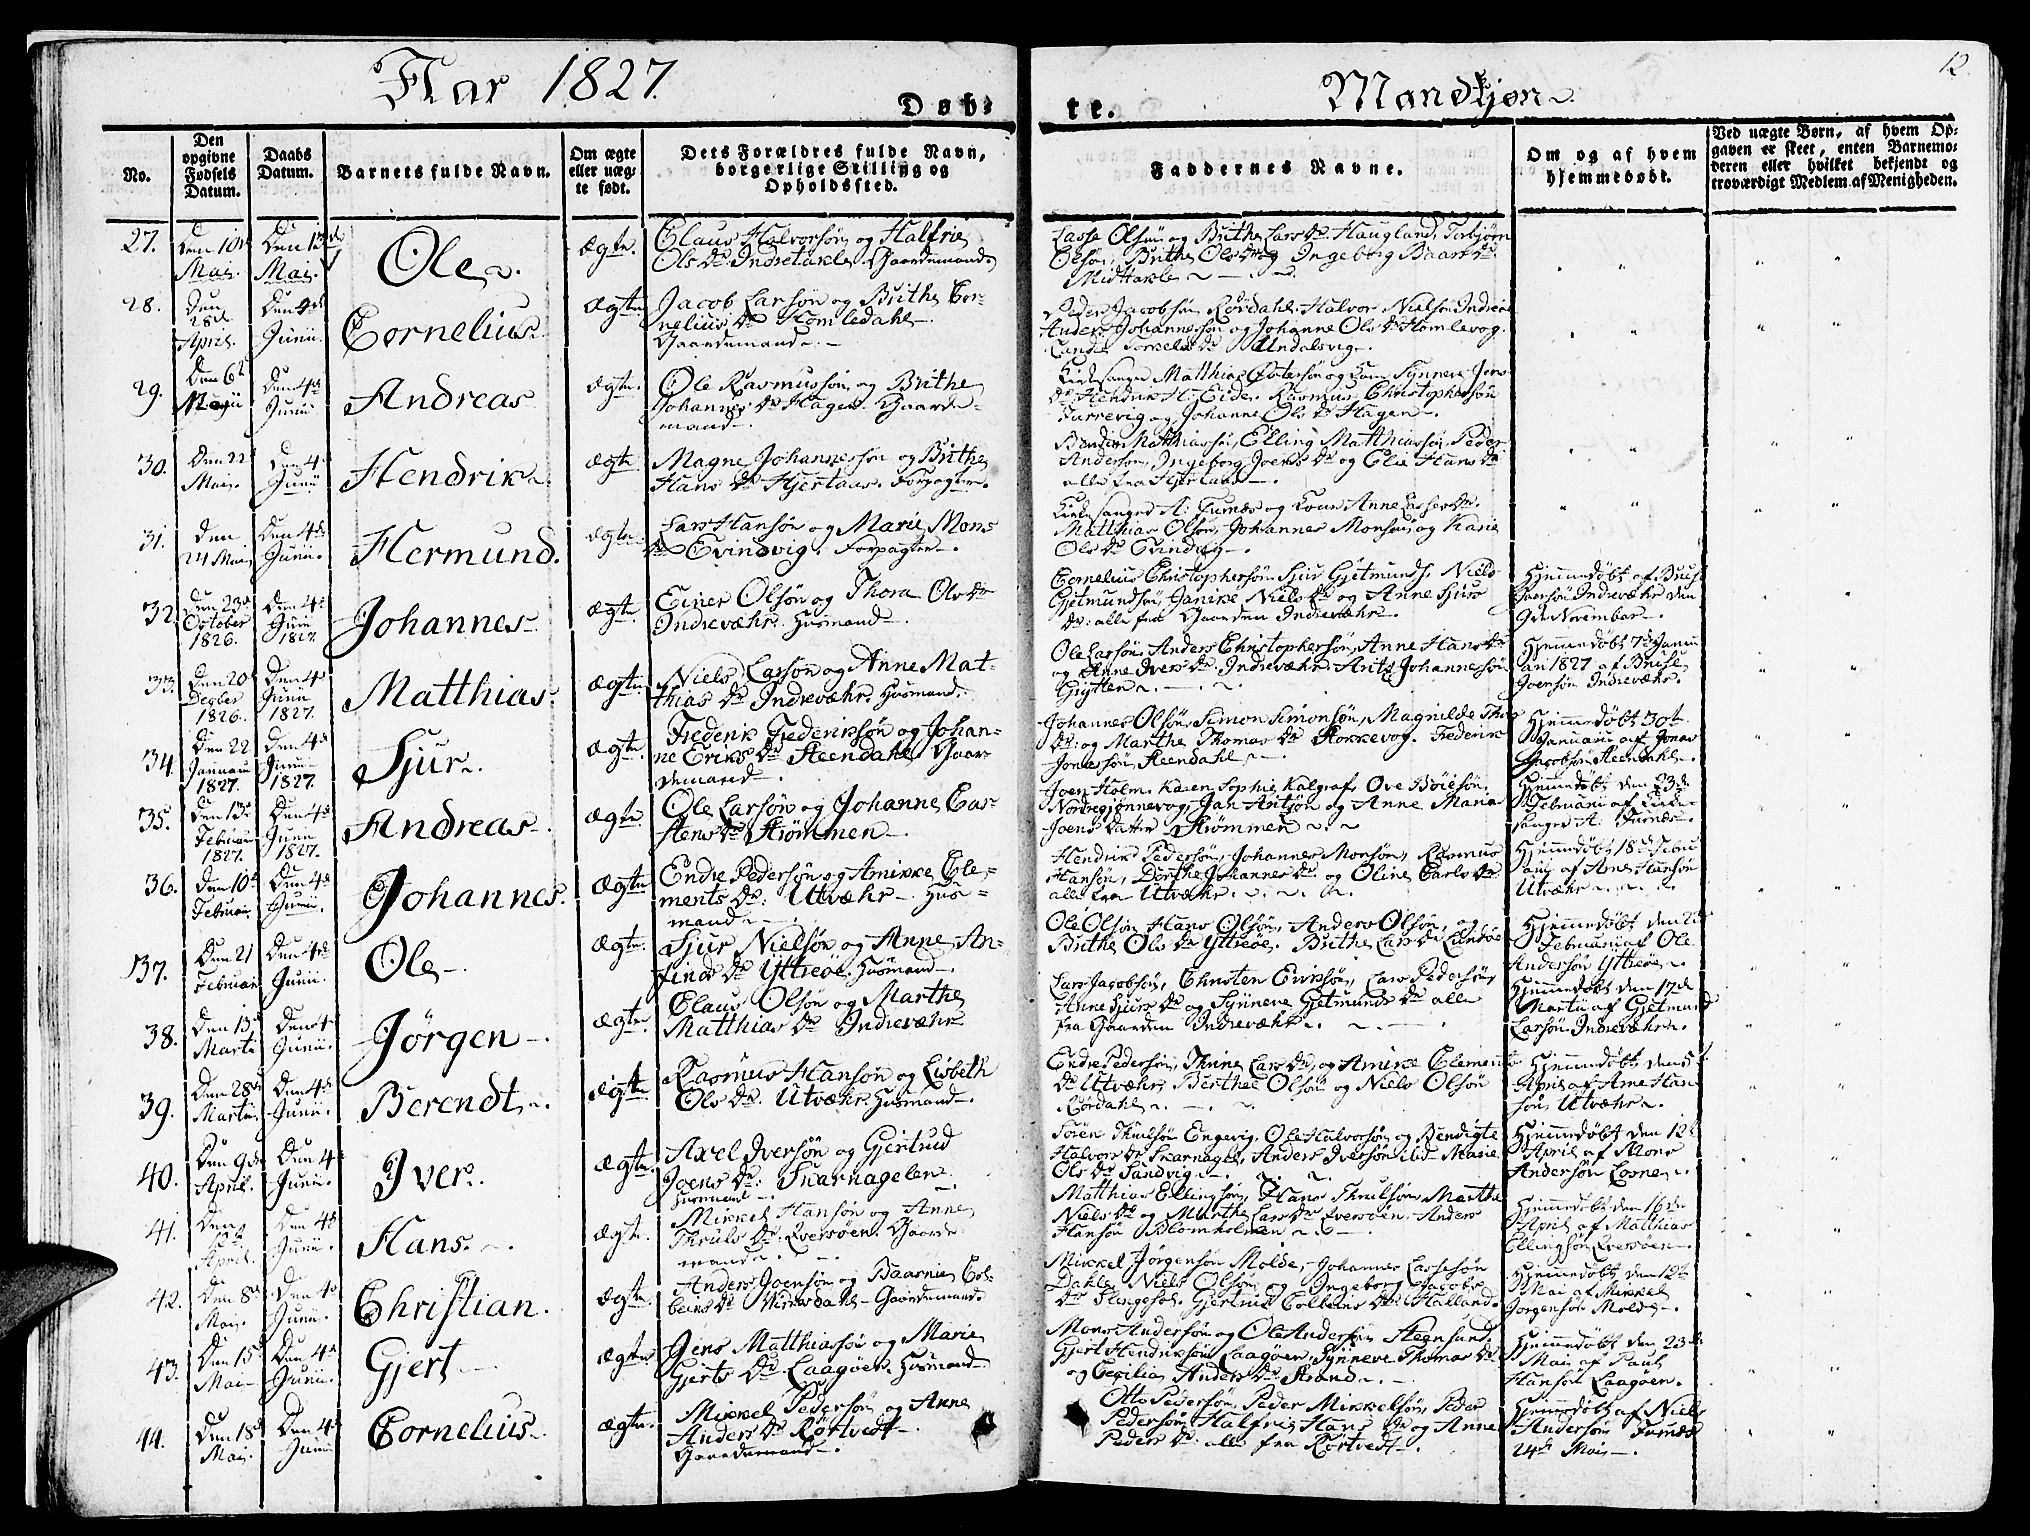 Aar 1827.
Døb-
te.
Mandkjøn.
12.
No.
Den opgivne Fødsels Datum.
Daabs Datum.
Barnets fulde Navn.
Om ægte eller uægte født.
Dets Forældres fulde Navn, borgerlige Stilling og Opholdssted.
Faddernes Navne.
Om og af hvem hjemmedøbt.
Ved uægte Børn, af hvem Opgaven er skeet, enten Barnemoderen eller hvilket bekjendt og troværdigt Medlem af Menigheden.
27.
Den 10de Mai.
Den 13de Mai.
Ole
Ægte.
Claus Halvorsøn og Halfrie
Ols Dr. Indretakle. Gaardemand
Lasse Olsøn og Brithe Lars Dr. Haugland, Torbjørn
Olsøn, Brithe Ols Dr. og Ingeborg Baars Dr.
Midtakle
28.
Den 28d. April.
Den 4de Junii.
Cornelius.
Ægte
Jacob Larsøn og Brithe Cor-
nelius Dr. Homledahl.
Gaardemand.
Peder Jacobsøn Rørdahl. Halvor Nielsøn Indreide
Anders Johannesøn og Johanne Ols Dr. Homlevog.
Torkels Dr. Undalsvig.
29.
Den 6te
Den 4de Junii
Andreas
Ægte.
Ole Rasmussøn og Brithe
Johannes Dr. Hagen. Gaarde-
mand.
Kirkesanger Matthias Petersøn og Kone Synneve Jens
Dr. Hendrik H. Eide. Rasmus Christophersøn
og Johanne Ols Dr. Hagen.
30.
Den 22 Mai.
Den 4de Junii
Hendrik.
Ægte
Magne Johannessøn og Brithe
Hans Dr. Hjertaas. Forpagter.
Matthiassøn, Elling Matthiassøn, Peder
Andersøn, Ingeborg Joens Dr. og Elie Hans Dr.
alle fra Hjertaas.
31.
Den 24 Mai
Den 4de Junii.
Hermund.
Ægte.
Lars Hansøn og Marie Mons
Dr. Evindvig. Forpagter.
Kirkesanger A: Furnæs og Kone Anne Lasses Dr.
Matthias Olsøn, Johannes Monsøn og Karie
Ols Dr. Evindvig.
32.
Den 23de October 1826.
Den 4de Junii 1827.
Johannes
Ægte.
Einer Olsøn og Thora Ols Dr.
Indrevæhr. Husmand.
Cornelius Christophersøn, Sjur Gjetmunds, Niels
Gjetmundsøn, Janike Niels Dr. og Anne Sjurs
Dr: alle fra Gaarden Indrevæhr.
Hjemmedøbt af Brus
Joersøn Indrevæhr den
9de November.
33.
Den 20 Decber 1826.
Den 4de Junii 1827.
Matthias.
Ægte.
Niels Larsøn og Anne Mat-
thias Dr. Indrevæhr. Husmand.
Ole Larsøn, Anders Christophersøn, Anne Hans Dr.
og Anne Ivers Dr. Indrevæhr. Arits Johannesøn
Hjemmedøbt 7de Janu
ari 1827 af Bruse
Joensøn Indrevæhr.
34.
Den 22 Januarii 1827.
Den 4de Junii 1827.
Sjur.
Ægte.
Frederik Frederiksøn og Johan-
ne Eriks Dr. Steendahl Gaar-
demand
Johannes Olsøn, Simon Simonsøn, Magnilde Thos
Dr: og Marthe Thomas Dr. Stokkevog. Frederik
Jonassøn Steendahl.
Hjemmedøbt 30te
Januarii af Jonas
Jacobsøn Steendahl.
35.
Den 13de Februari 1827.
Den 4de Junii 1827.
Andreas.
Ægte.
Ole Larsøn og Johanne Car-
stens Dr. Strømmen.
Joen Holm. Karen Sophie Kalgraf. Ove Bøiesøn
Nordregjønnevog. Jan Antsøn og Anne Maria
Joens Datter Strømmen
Hjemmedøbt den 23de
Februarii af Kirke-
sanger A: Furnæs.
36.
Den 10de Februar.
Den 4de Junii.
Johannes.
Ægte
Endre Pedersøn og Anikke Cle-
ments Dr. Utvæhr. Hus-
mand.
Hendrik Pedersøn, Johannes Monsøn, Rasmus
Hansøn, Dorthe Johannes Dr. og Oline Carls Dr.
alle fra Utvæhr.
Hjemmedøbt 18de Febru
arii af Arne Hansøn
Utvæhr
37.
Den 21 Februar
Den 4de Junii.
Ole.
Ægte.
Sjur Nielsøn og Anne An-
finds Dr. Yttreøe. Husmand.
Ole Olsøn, Hans Olsøn, Anders Olsøn, og
Brithe Ols Dr. Yttreøe. Brithe Lars Dr. Lundøe
Hjemmedøbt den 2de
Februarii af Ole
Andersøn Yttreøe.
38.
Den 13de Martii
Den 4de Junii.
Jørgen.
Ægte.
Claus Olsøn og Marthe
Matthias Dr. Indrevæhr.
Lars Jacobsøn, Christen Eriksøn, Lars Pedersøn,
Anne Sjurs Dr. og Synneve Gjetmunds Dr. alle
fra Gaarden Indrevæhr.
Hjemmedøbt den 17de
Martii af Gjetmund
Larsøn Indrevæhr.
39.
Den 28de Martii.
Den 4de Junii.
Berendt.
Ægte
Rasmus Hansøn og Lisbeth
Ols Dr. Utvæhr. Husmand.
Endre Pedersøn, Thrine Lars Dr. og Amike Clements
Dr. Utvæhr, Berthel Olsøn og Niels Olsøn
Rørdahl.
Hjemmedøbt den 5te
April af Arne Han
søn, Utvæhr.
40.
Den 9de April.
Den 4de Junii.
Iver.
Ægte.
Axel Iversøn og Gjertrud
Joens Dr. Skarnagelen.
Husmand.
Søren Thrulsøn Engevig. Ole Halvorsøn og Bendigte
Halvors Dr. Skarnagle, Anders Iversøn ibd. Marie
Ols Dr. Sandvig.
Hjemmedøbt den 12te
April af Mons
Andersøn Losne.
41.
Den
April.
Den 4de Junii.
Hans.
Ægte.
Mikkel Hansøn og Anne
Thruls Dr. Eversøen. Gaarde
mand.
Matthias Ellingsøn, Hans Thrulsøn, Marthe
Niels Dr. og Marthe Lars Dr. Eversøen. Anders
Hansøn Blomholmen
Hjemmedøbt den 16de
April af Matthias
Ellingsøn Eversøen.
42.
Den 8de Mai.
Den 4de Junii.
Christian.
Ægte.
Anders Joensøn og Baarnie Col-
beins Dr. Gaardemand.
Mikkel Jørgensøn Molde, Johannes Lassesøn
Dahle, Niels Olsøn og Ingeborg Jacobs
Dr. Slengesol. Gjertrud Colbeins Dr. Halland.
Hjemmedøbt den 12te
Mai af Mikkel
Jørgensøn Molde.
43.
Den 15de Mai
Den 4de Junii.
Gjert
Ægte
Jens Matthiassøn og Marie
Gjerts Dr. Laagøen. Husmand.
Mons Andersøn og Ole Andersøn Steensund.
Gjert Hendriksøn Laagøen, Synneve Thomas Dr.
og Cecilia Anders Dr. Strand.
Hjemmedøbt den 23de
Mai af Paul
Hansøn Laagøen.
44.
Den 18de Mai.
Den 4de Junii
Cornelius.
Ægte.
Mikkel Pedersøn og Anne
Anders Dr. Rørtvedt.
Gaardemand.
Otto Pedersøn, Peder Mikkelsøn, Peder
Pedersøn, Halfrie Hans Dr. og Anne
Peders Dr. alle fra Rørtvedt.
Hjemmedøbt af Niels
Andersøn Furnæs
24de Mai.